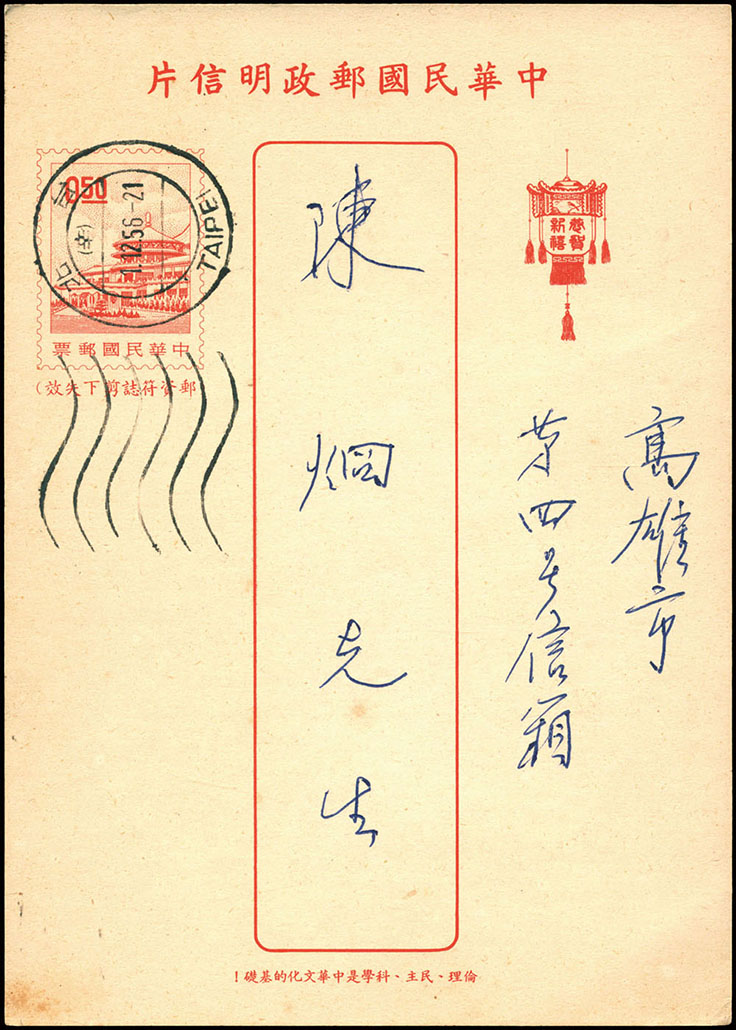 中華民國郵政明信片
恭賀
新禧
高雄市
第四号信箱
陳炯先生
0.50
中華民國郵票
(郵資符誌剪下失效)
台北
TAIPEI
1.12.56-21
倫理、民主、科學是中華文化的基礎！